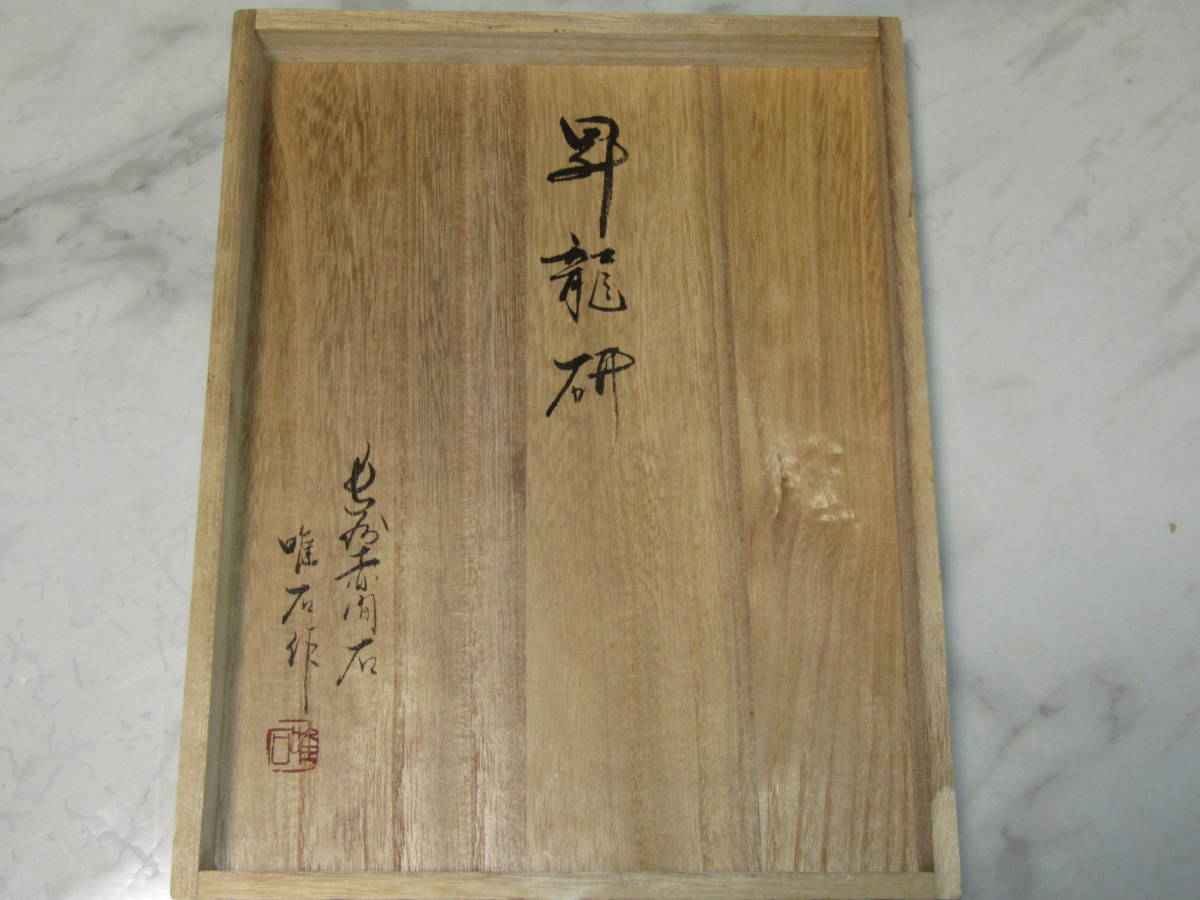 昇龍研
長州赤间石
唯石作
唯石